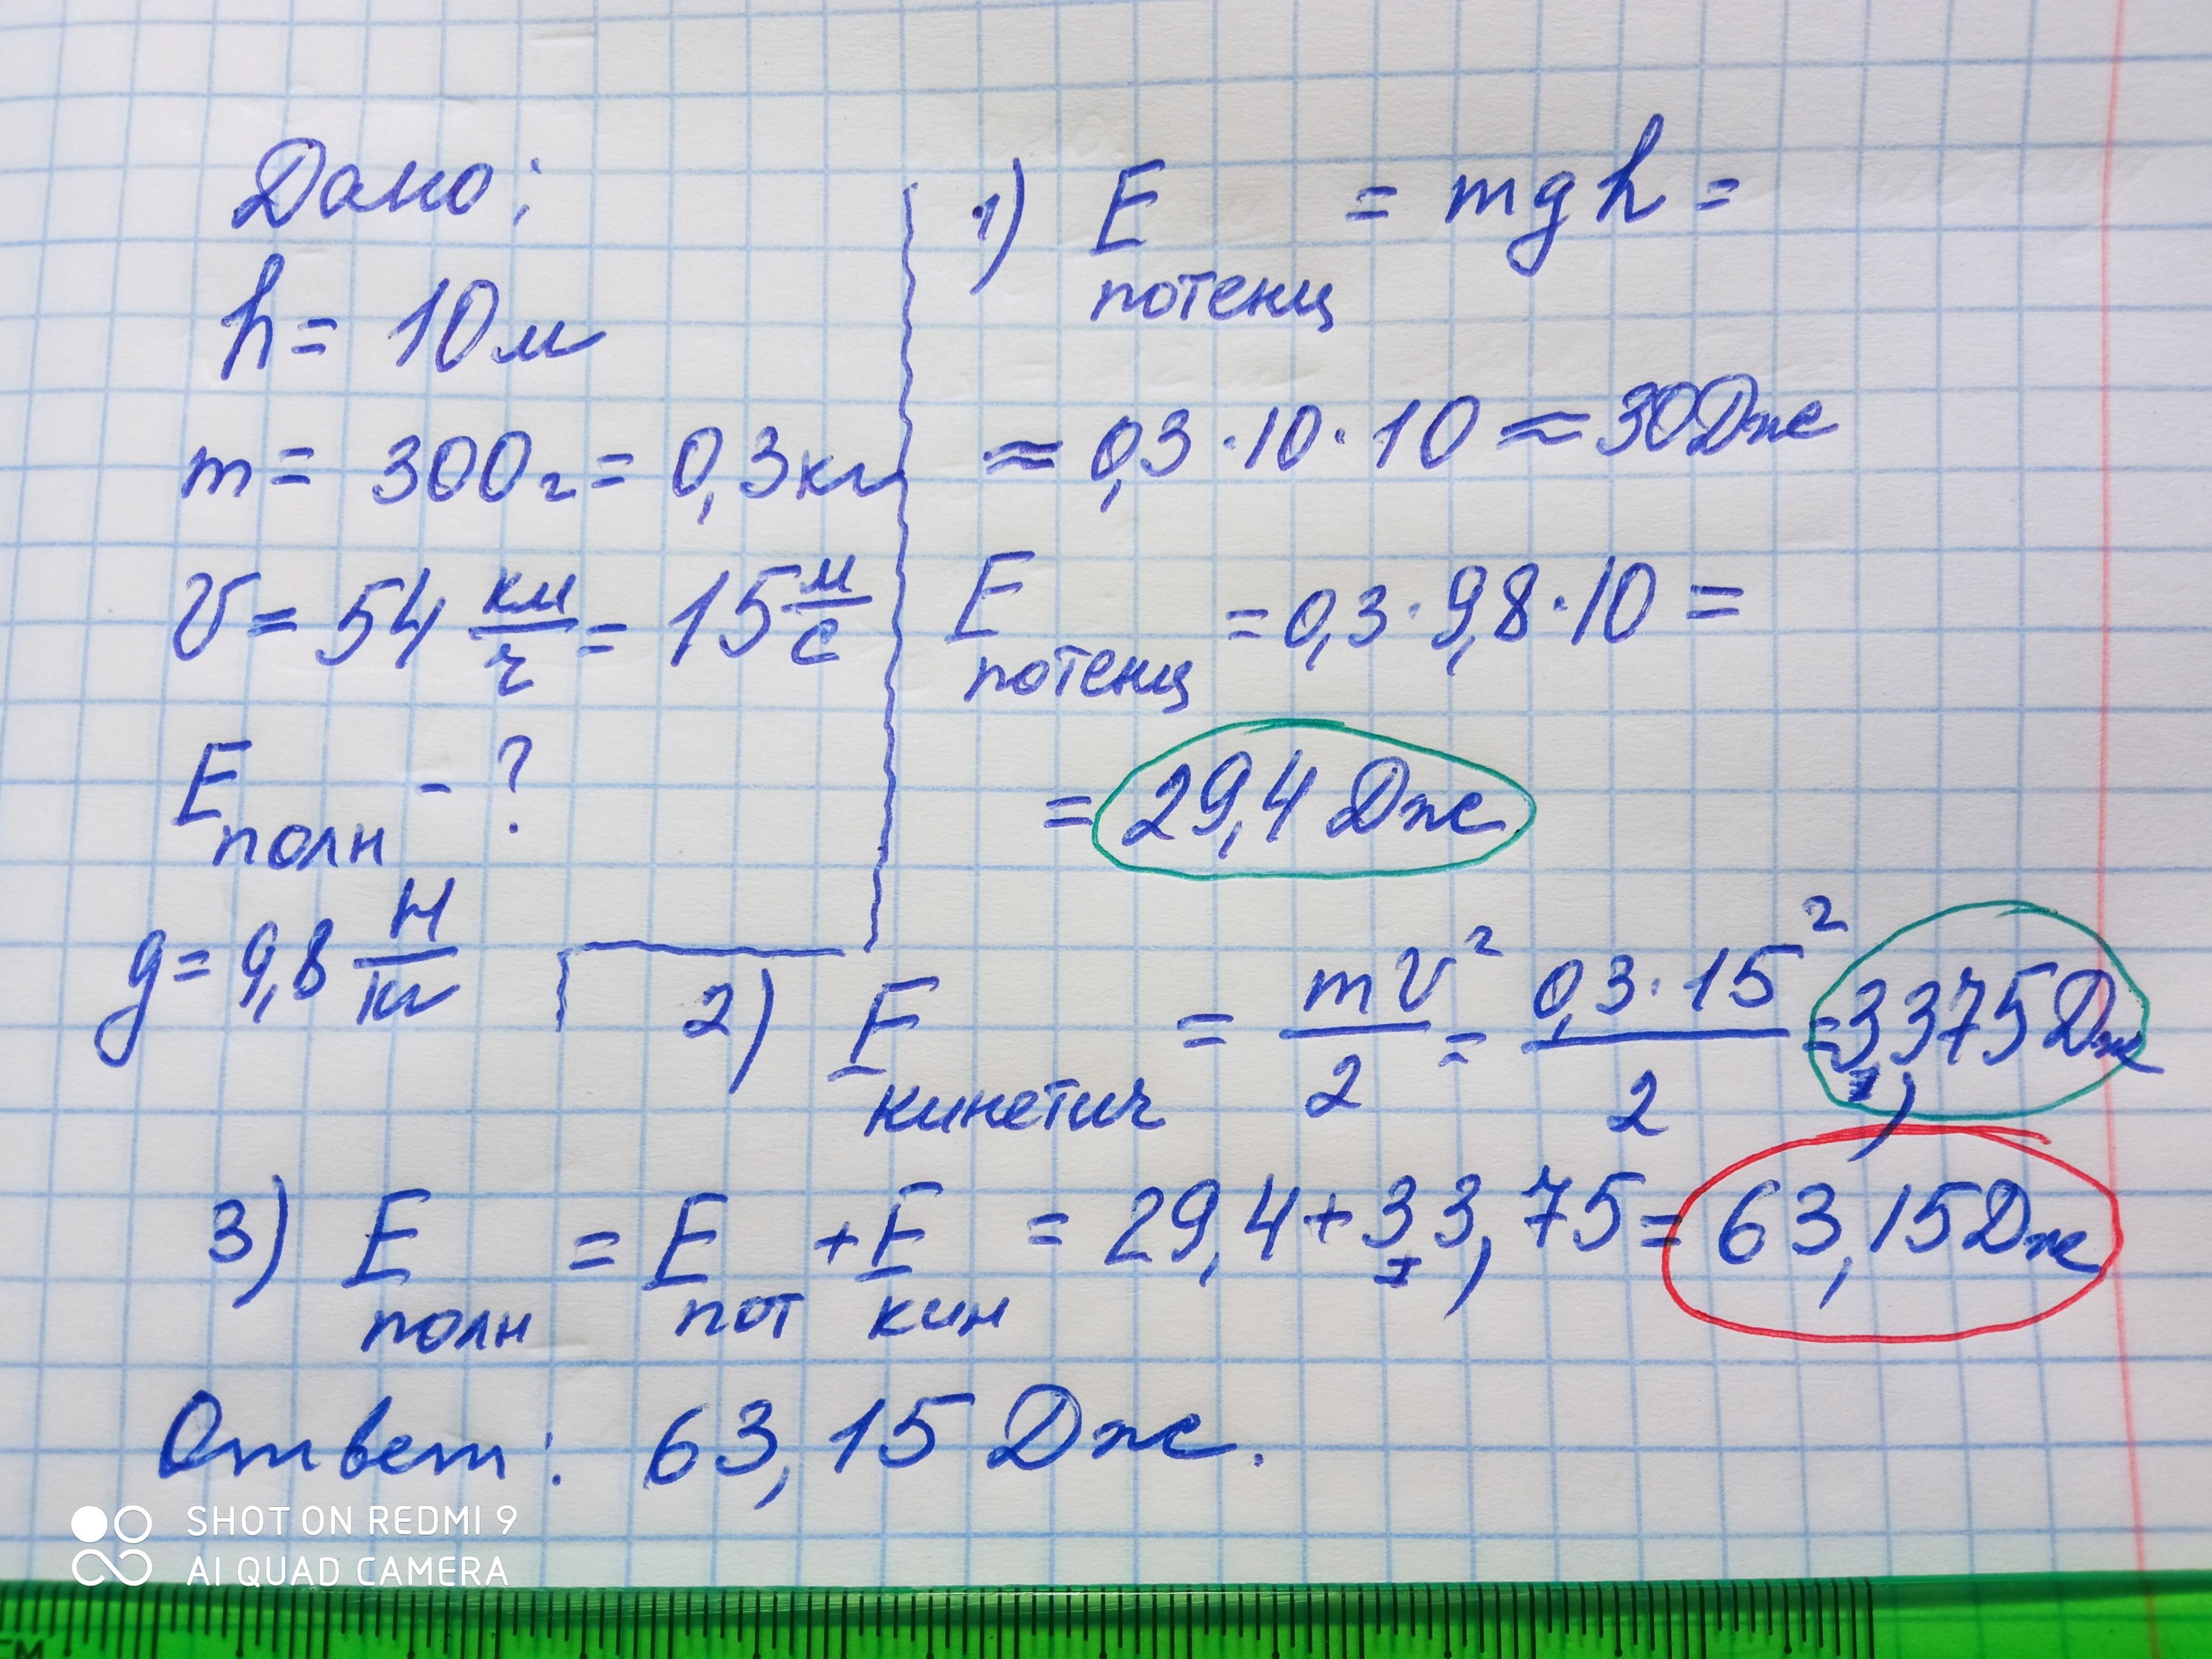 Дано:
h = 10 м
m = 300 г = 0,3 кг
V = 54 км/ч = 15 м/с
E полн - ?
g = 9,8 Н/кг
1) E потенц = mgh =
≈ 0,3 · 10 · 10 ≈ 30 Дж
E потенц = 0,3 · 9,8 · 10 =
= 29,4 Дж
2) E кинетич = mV²/2 = 0,3 · 15²/2 = 33,75 Дж
3) E полн = E пот + E кин = 29,4 + 33,75 = 63,15 Дж
Ответ: 63,15 Дж.
SHOT ON REDMI 9
AI QUAD CAMERA